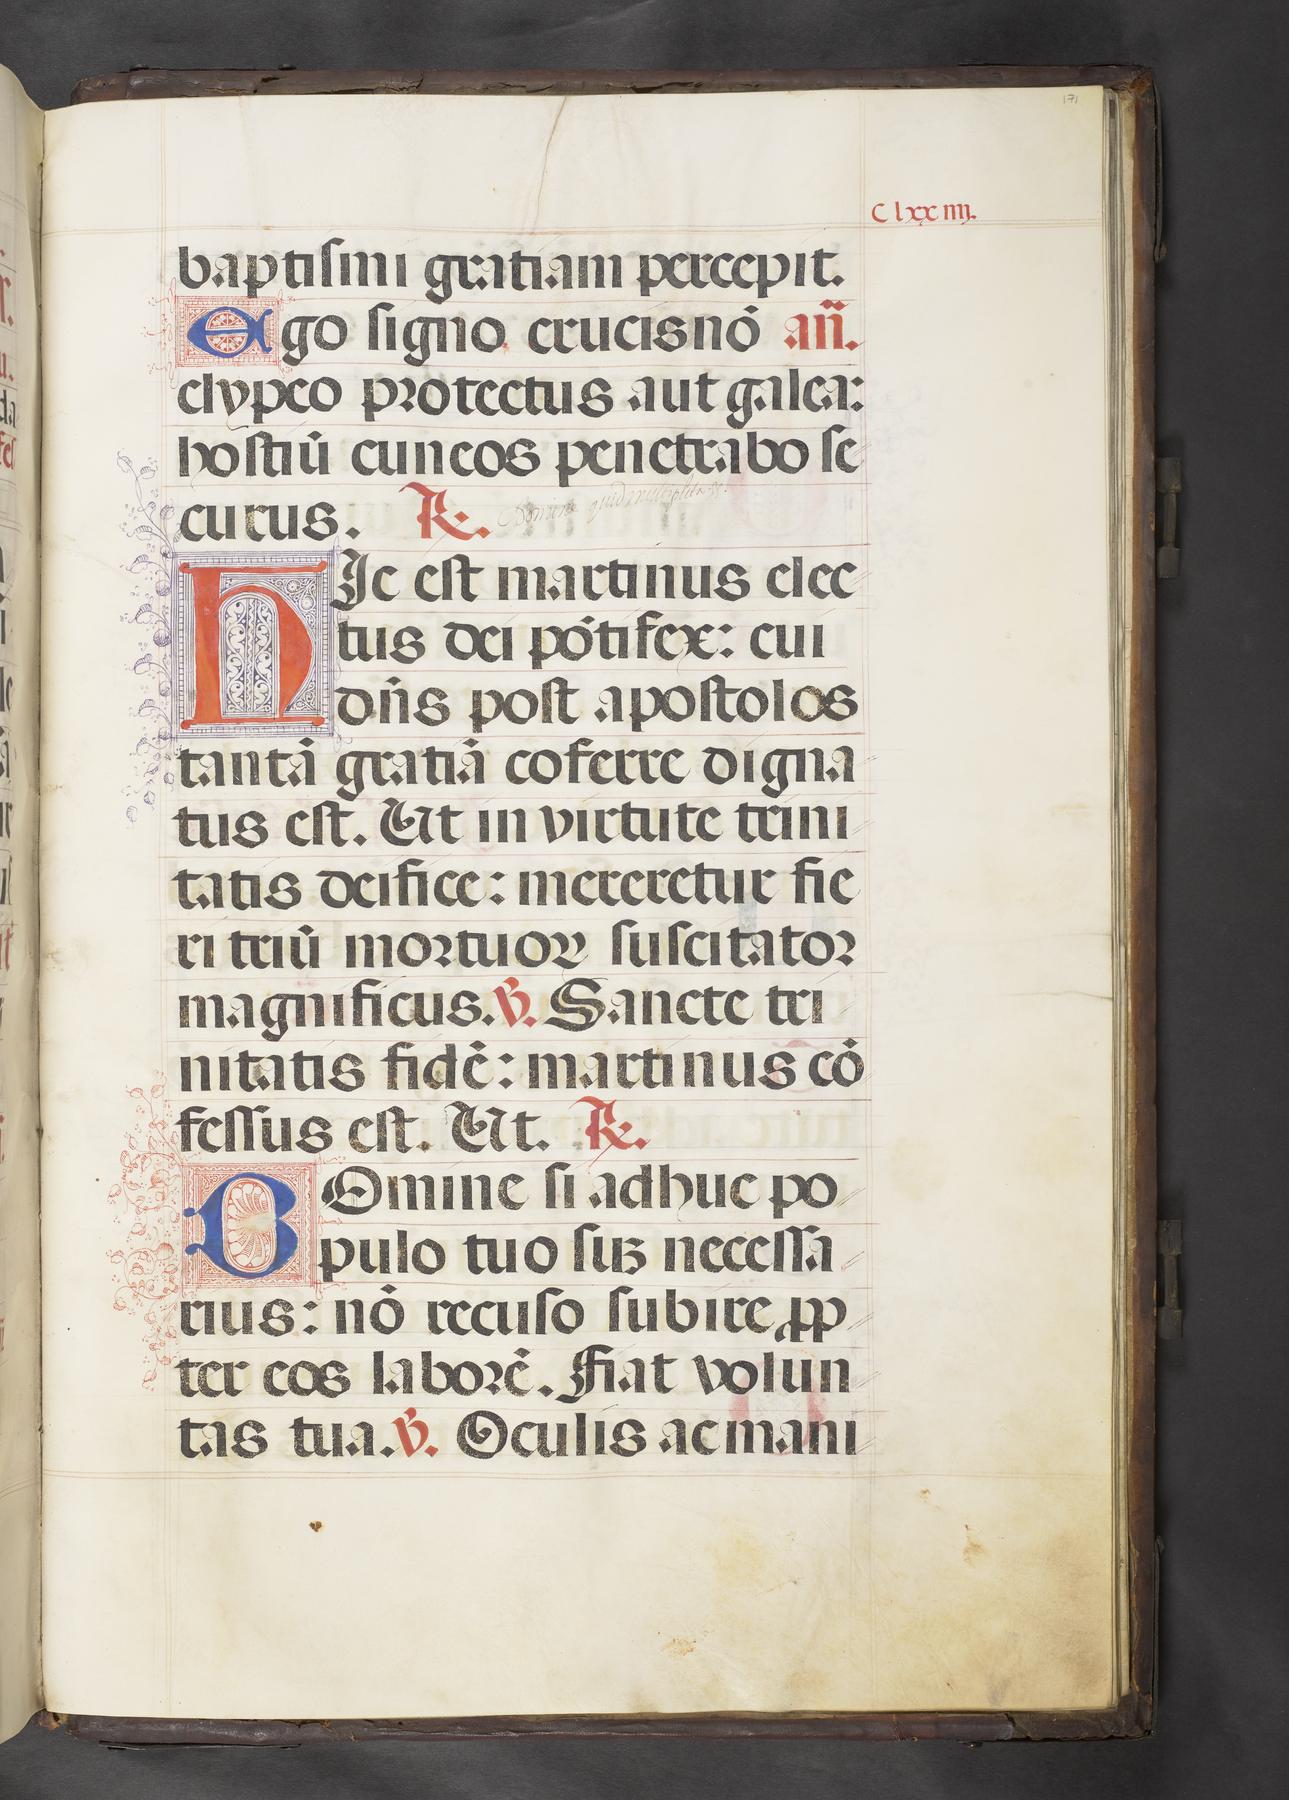 171
Clxxiiij.
baptismi gratiam percepit.
Ego signo crucis nō añ.
clypeo protectus aut galea:
hostiū cuneos penetrabo se
curus. R.
Domine quid multiplicati
HIc est martinus elec
tus dei pōtifex: cui
dñs post apostolos
tantā gratiā coferre digna
tus est. Ut in virtute trini
tatis deifice: mereretur fie
ri triū mortuoꝝ suscitator
magnificus. ℣. Sancte tri
nitatis fidē: martinus cō
fessus est. Ut. R.
DOmine si adhuc po
pulo tuo suꝫ necessa
rius: nō recuso subire ꝓp
ter eos laborē. Fiat volun
tas tua. ℣. Oculis ac mani